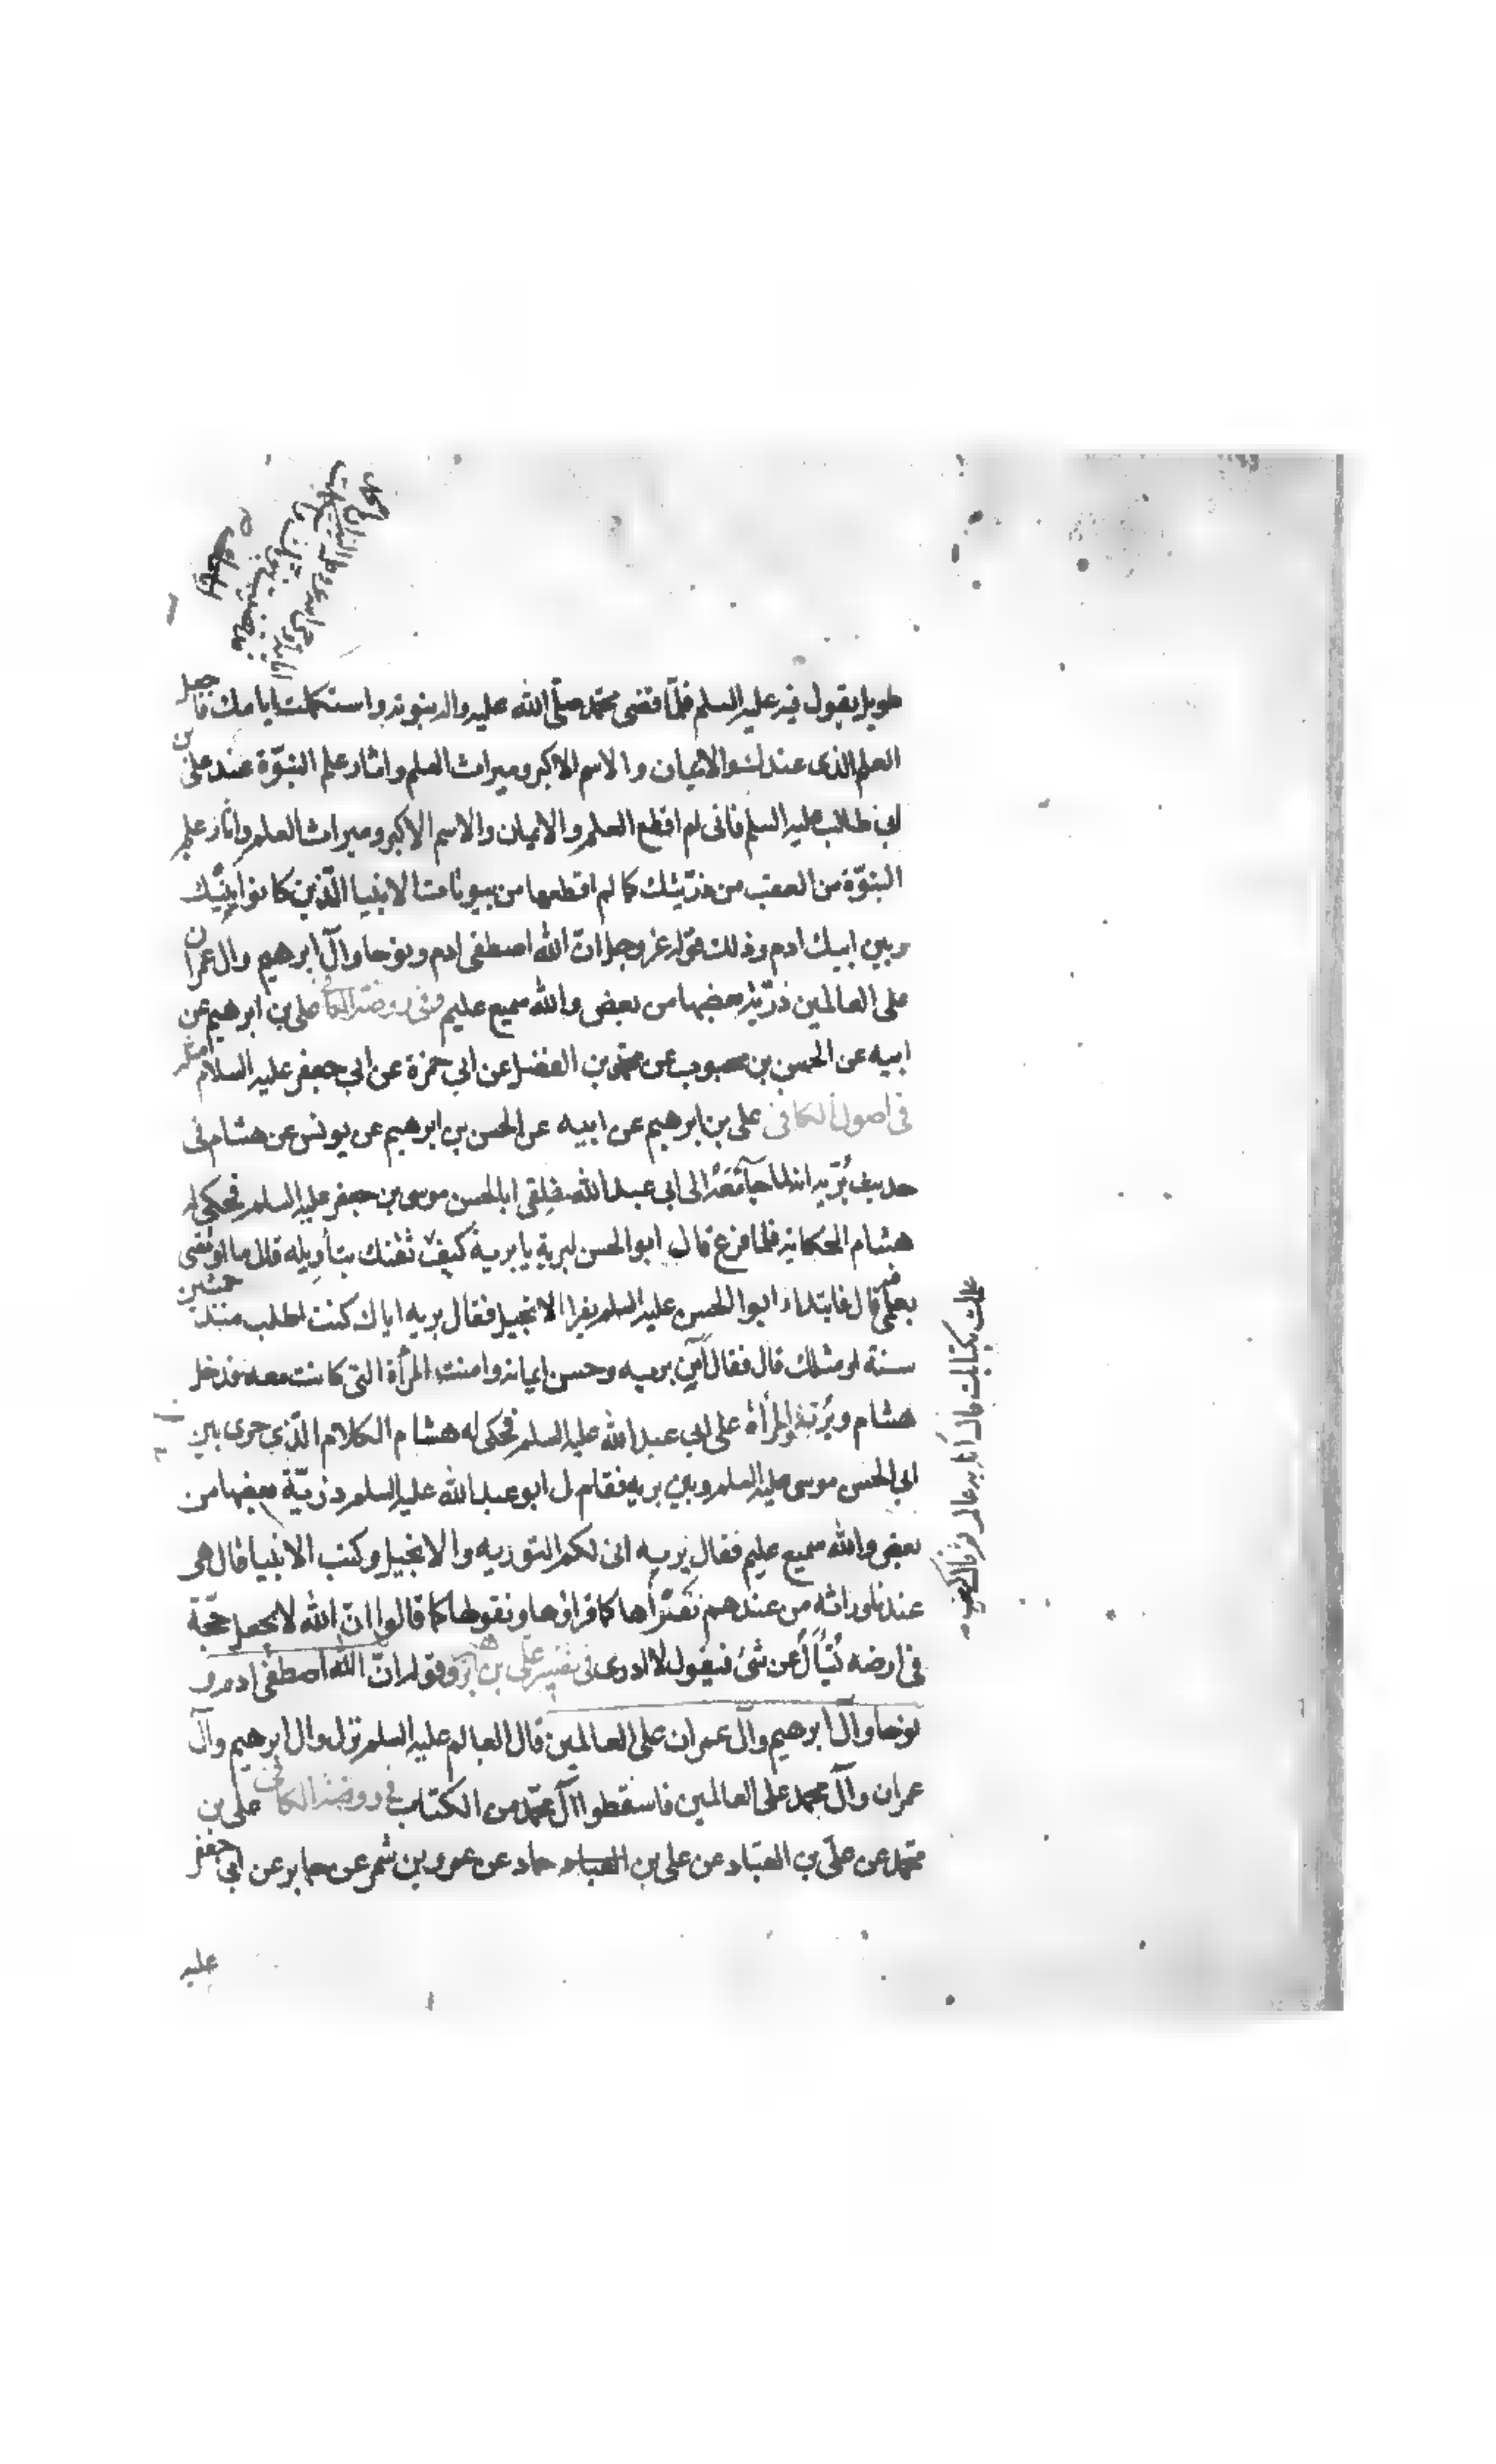 طويل يقول فيه عليه السلم فلما قضى محمد صلى الله عليه واله نبوته واستكملت ايامك فاجعل
العلم الذى عندك والايمان والاسم الاكبر وميراث العلم واثار علم النبوة عند على بن
ابى طالب عليه السلم فانى لم اقطع العلم والايمان والاسم الاكبر وميراث العلم واثار علم
النبوة من العقب من ذريتك كما لم اقطعها من بيوتات الانبيا الذين كانوا بينك
وبين ابيك ادم وذلك قوله عز وجل ان الله اصطفى ادم ونوحا وآل ابرهيم وال عمران
على العالمين ذرية بعضها من بعض والله سميع عليم وفى روضة الكافى على بن ابرهيم عن
ابيه عن الحسن بن محبوب عن محمد بن الفضيل عن ابى حمزة عن ابى جعفر عليه السلام مثله
فى اصول الكافى على بن ابرهيم عن ابيه عن الحسن بن ابرهيم عن يونس عن هشام فى
حديث بريه انه لما جآ معه الى ابى عبد الله فلقى ابا الحسن موسى بن جعفر عليه السلم فحكى له
هشام الحكاية فلما فرغ قال ابو الحسن لبريه يا بريه كيف ثقتك بتأويله قال ما اوثقنى
بعلمى فيه قال فابتداء ابو الحسن عليه السلم يقرا الانجيل فقال بريه اياك كنت اطلب منذ خمسين
سنة او مثلك قال فقال آمن بريه وحسن ايمانه وامنت المرأة التى كانت معه فدخل
هشام وبريه والمرأة على ابى عبد الله عليه السلم فحكى له هشام الكلام الذى جرى بين
ابى الحسن موسى عليه السلم وبين بريه فقام ل ابو عبد الله عليه السلم ذرية بعضها من
بعض والله سميع عليم فقال بريه انى لكم التوريه والانجيل وكتب الانبيا قال هى
عندنا وراثه من عندهم نقرأها كما قراؤها ونقولها كما قالوا ان الله لا يجعل حجة
فى ارضه يسأل عن شئ فيقول لا ادرى فى تفسير على بن ابرهيم وقوله ان الله اصطفى ادم و
نوحا وآل ابرهيم وآل عمران على العالمين قال العالم عليه السلم نزل وال ابرهيم وآل
عمران وآل محمد على العالمين فاسقطوا آل محمد من الكتاب فى روضة الكافى على بن
محمد عن على بن العباد عن على بن حماد عن عمرو بن شمر عن جابر عن ابى جعفر
عليه